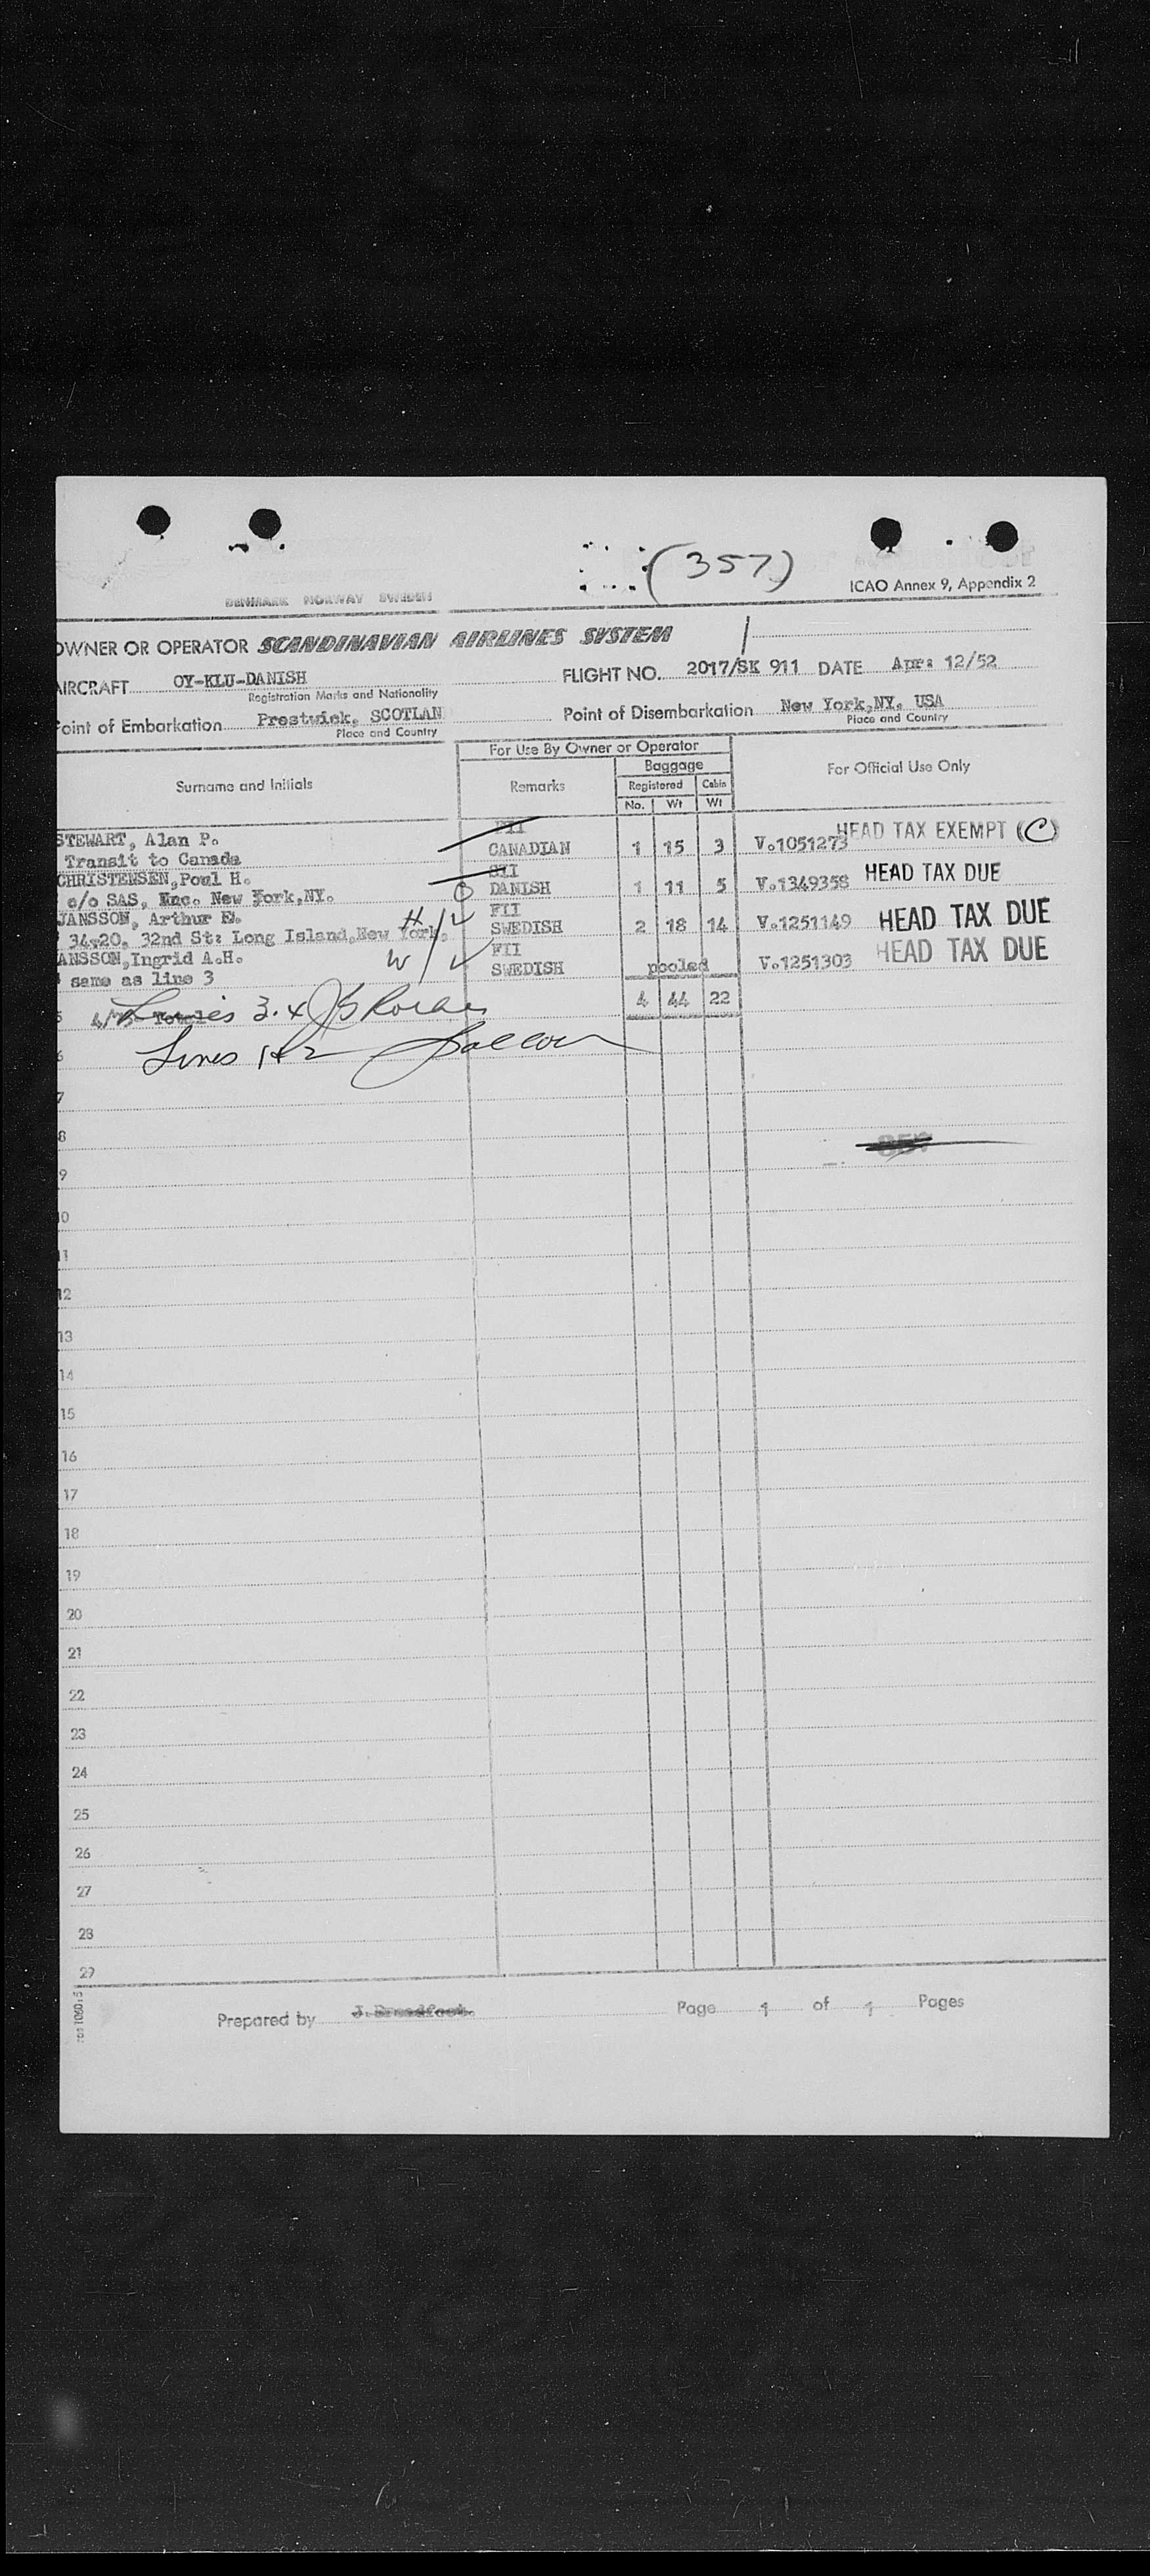 (357)
ICAO Annex 9, Appendix 2
DENMARK NORWAY SWEDEN
OWNER OR OPERATOR SCANDINAVIAN AIRLINES SYSTEM
AIRCRAFT OY-KLU-DANISH FLIGHT NO. 2017/SK 911 DATE Apr: 12/52
Registration Marks and Nationality
Point of Embarkation Prestwick, SCOTLAN Point of Disembarkation New York,NY. USA
Place and Country Place and Country
For Use By Owner or Operator
Surname and Initials Remarks Baggage For Official Use Only
Registered Cabin
No. Wt Wt
STEWART, Alan P. FII HEAD TAX EXEMPT (C)
Transit to Canada CANADIAN 1 15 3 V.1051273
CHRISTENSEN,Poul H. STI HEAD TAX DUE
c/o SAS, Inc. New York,NY. DANISH 1 11 5 V.1349358
JANSSON, Arthur E. FII HEAD TAX DUE
34-20. 32nd St: Long Island,New York, H/ SWEDISH 2 18 14 V.1251149
ANSSON,Ingrid A.H. W/ FII HEAD TAX DUE
same as line 3 SWEDISH pooled V.1251303
4 44 22
Lines 3.4
Lines 1+2
6
7
8
357
9
10
11
12
13
14
15
16
17
18
19
20
21
22
23
24
25
26
27
28
29
Prepared by J. Broadfoot. Page 1 of 1 Pages